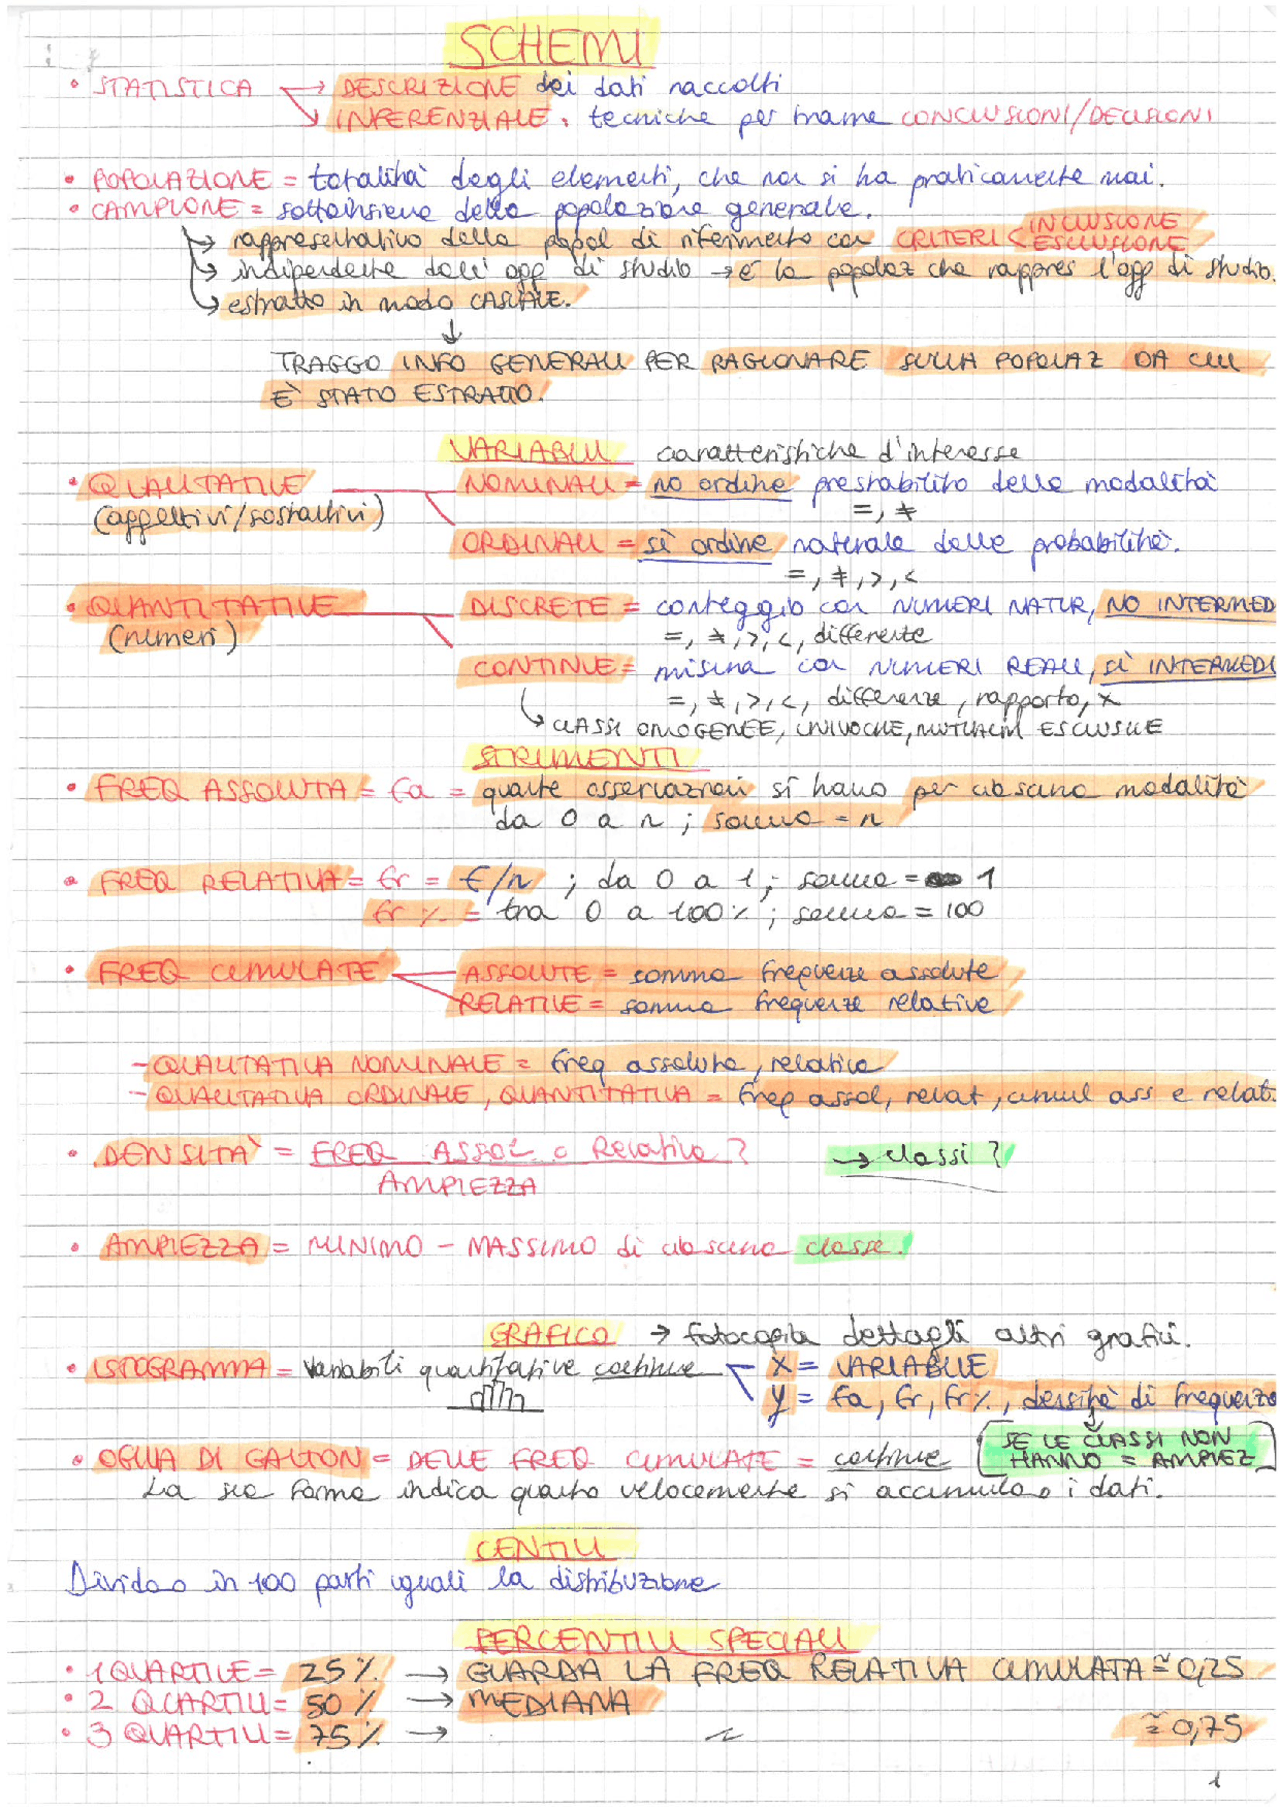 SCHEMI
• STATISTICA → DESCRIZIONE dei dati raccolti
↘ INFERENZIALE. tecniche per trarne CONCLUSIONI/DECISIONI
• POPOLAZIONE = totalità degli elementi, che non si ha praticamente mai.
• CAMPIONE = sottoinsieme della popolazione generale.
↳ rappresentativo della popol di riferimento con CRITERI < INCLUSIONE
ESCLUSIONE
↳ indipendente dall'ogg di studio → è la popolaz che rappres l'ogg di studio.
↳ estratto in modo CASUALE.
↓
TRAGGO INFO GENERALI PER RAGIONARE SULLA POPOLAZ DA CUI
È STATO ESTRATTO.
VARIABILI caratteristiche d'interesse
• QUALITATIVE NOMINALI = no ordine prestabilito delle modalità
(aggettivi/sostantivi) =, ≠
ORDINALI = sì ordine naturale delle probabilità.
=, ≠, >, <
• QUANTITATIVE DISCRETE = conteggio con NUMERI NATUR, NO INTERMED
(numeri) =, ≠, >, <, differenze
CONTINUE = misura con NUMERI REALI, sì INTERMEDI
=, ≠, >, <, differenze, rapporto, x
↳ CLASSI OMOGENEE, UNIVOCHE, MUTUALM ESCLUSIVE
STRUMENTI
• FREQ ASSOLUTA = fa = quante osservazioni si hanno per ciascuna modalità
da 0 a n ; somma = n
• FREQ RELATIVA = fr = f/n ; da 0 a 1 ; somma = 1
fr % = tra 0 a 100% ; somma = 100
• FREQ CUMULATE ASSOLUTE = somma frequenze assolute
RELATIVE = somma frequenze relative
- QUALITATIVA NOMINALE = freq assoluta, relativa
- QUALITATIVA ORDINALE, QUANTITATIVA = freq assol, relat, cumul ass e relat.
• DENSITÀ = FREQ ASSOL o Relativa? → classi?
AMPIEZZA
• AMPIEZZA = MINIMO - MASSIMO di ciascuna classe.
GRAFICO → fotocopia dettagli altri grafici.
• ISTOGRAMMA = variabili quantitative continue x = VARIABILE
y = fa, fr, fr%, densità di frequenza
↓
SE LE CLASSI NON
HANNO = AMPIEZ
• OGIVA DI GALTON = DELLE FREQ CUMULATE = continue
La sua forma indica quanto velocemente si accumulano i dati.
CENTILI
Dividono in 100 parti uguali la distribuzione
PERCENTILI SPECIALI
• 1 QUARTILE = 25% → GUARDA LA FREQ RELATIVA CUMULATA ≃ 0,25
• 2 QUARTILI = 50% → MEDIANA
• 3 QUARTILI = 75% → " ≃ 0,75
1